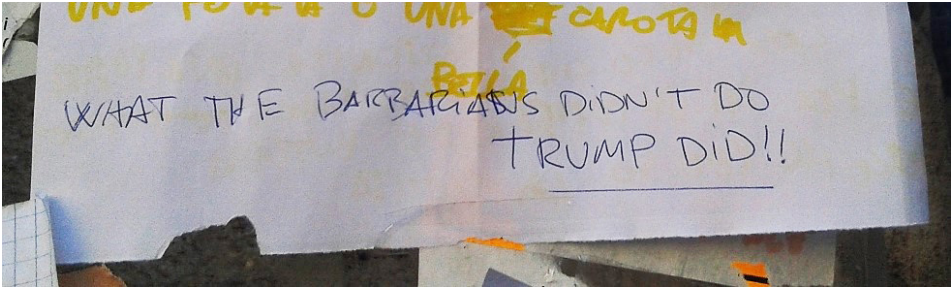 UNA O UNA CAROTA IN
BELLA
WHAT THE BARBARIANS DIDN'T DO
TRUMP DID!!